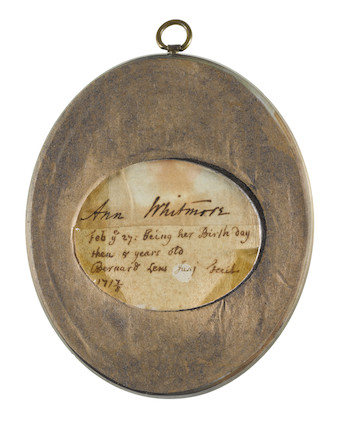 Ann Whitmore
feb yᵉ 27: Being her Birth day
then 8 years old
Bernard Lens junʳ fecit
171⅞